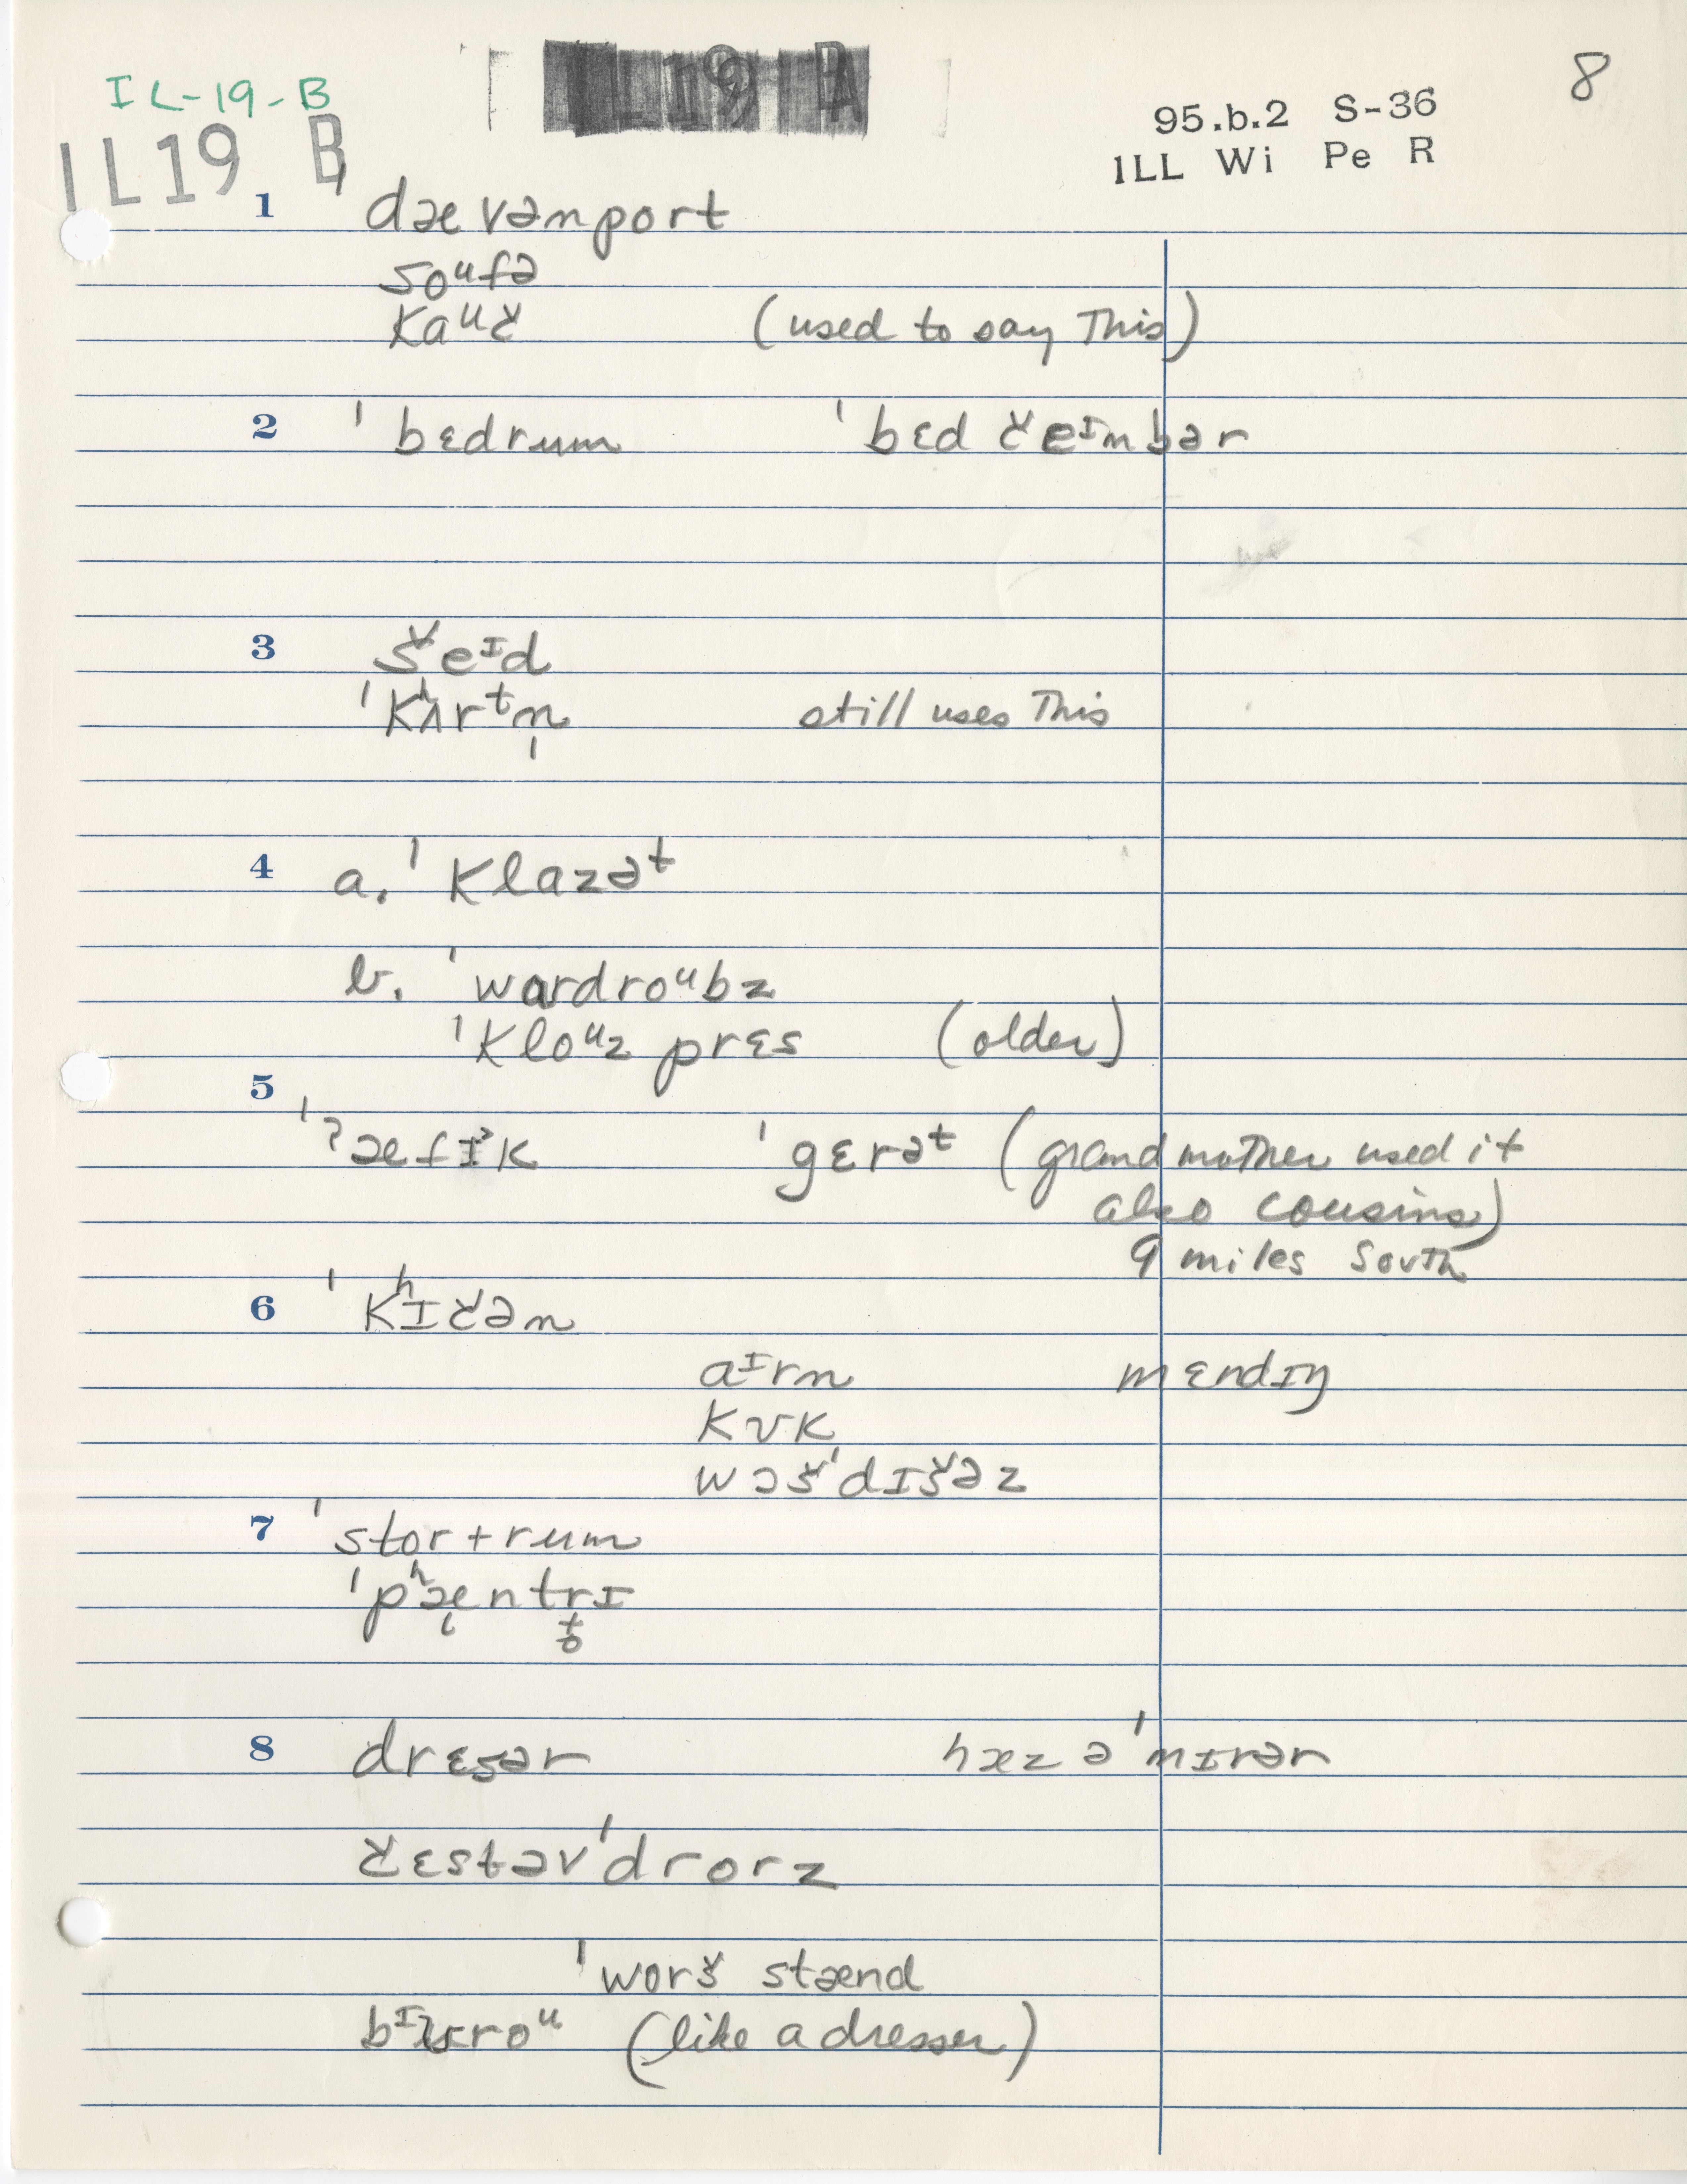 8
IL-19-B
IL19 A
95.b.2 S-36
ILL Wi Pe R
IL19 B
1 ˈdævənport
soᵘfə
kaᵘč (used to say This)
2 ˈbɛdrum ˈbɛd čeᶦmbər
3 šeᶦd
ˈkʰʌrᵗn̩ still uses This
4 a. ˈklazəᵗ
b. ˈwardroᵘbz
ˈkloᵘz prɛs (older)
5
ˈˀæfɪˀk ˈgɛrəᵗ (grandmother used it
also cousins)
9 miles South
6 ˈkʰɪčən
aᶦrn mɛndɪŋ
kʊk
wɔšˈdɪšəz
7 ˈstor+rum
ˈpʰæntrɪ
8 drɛsər hæz əˈmɪrər
čɛstəvˈdrorz
ˈworš stænd
(like a dresser)